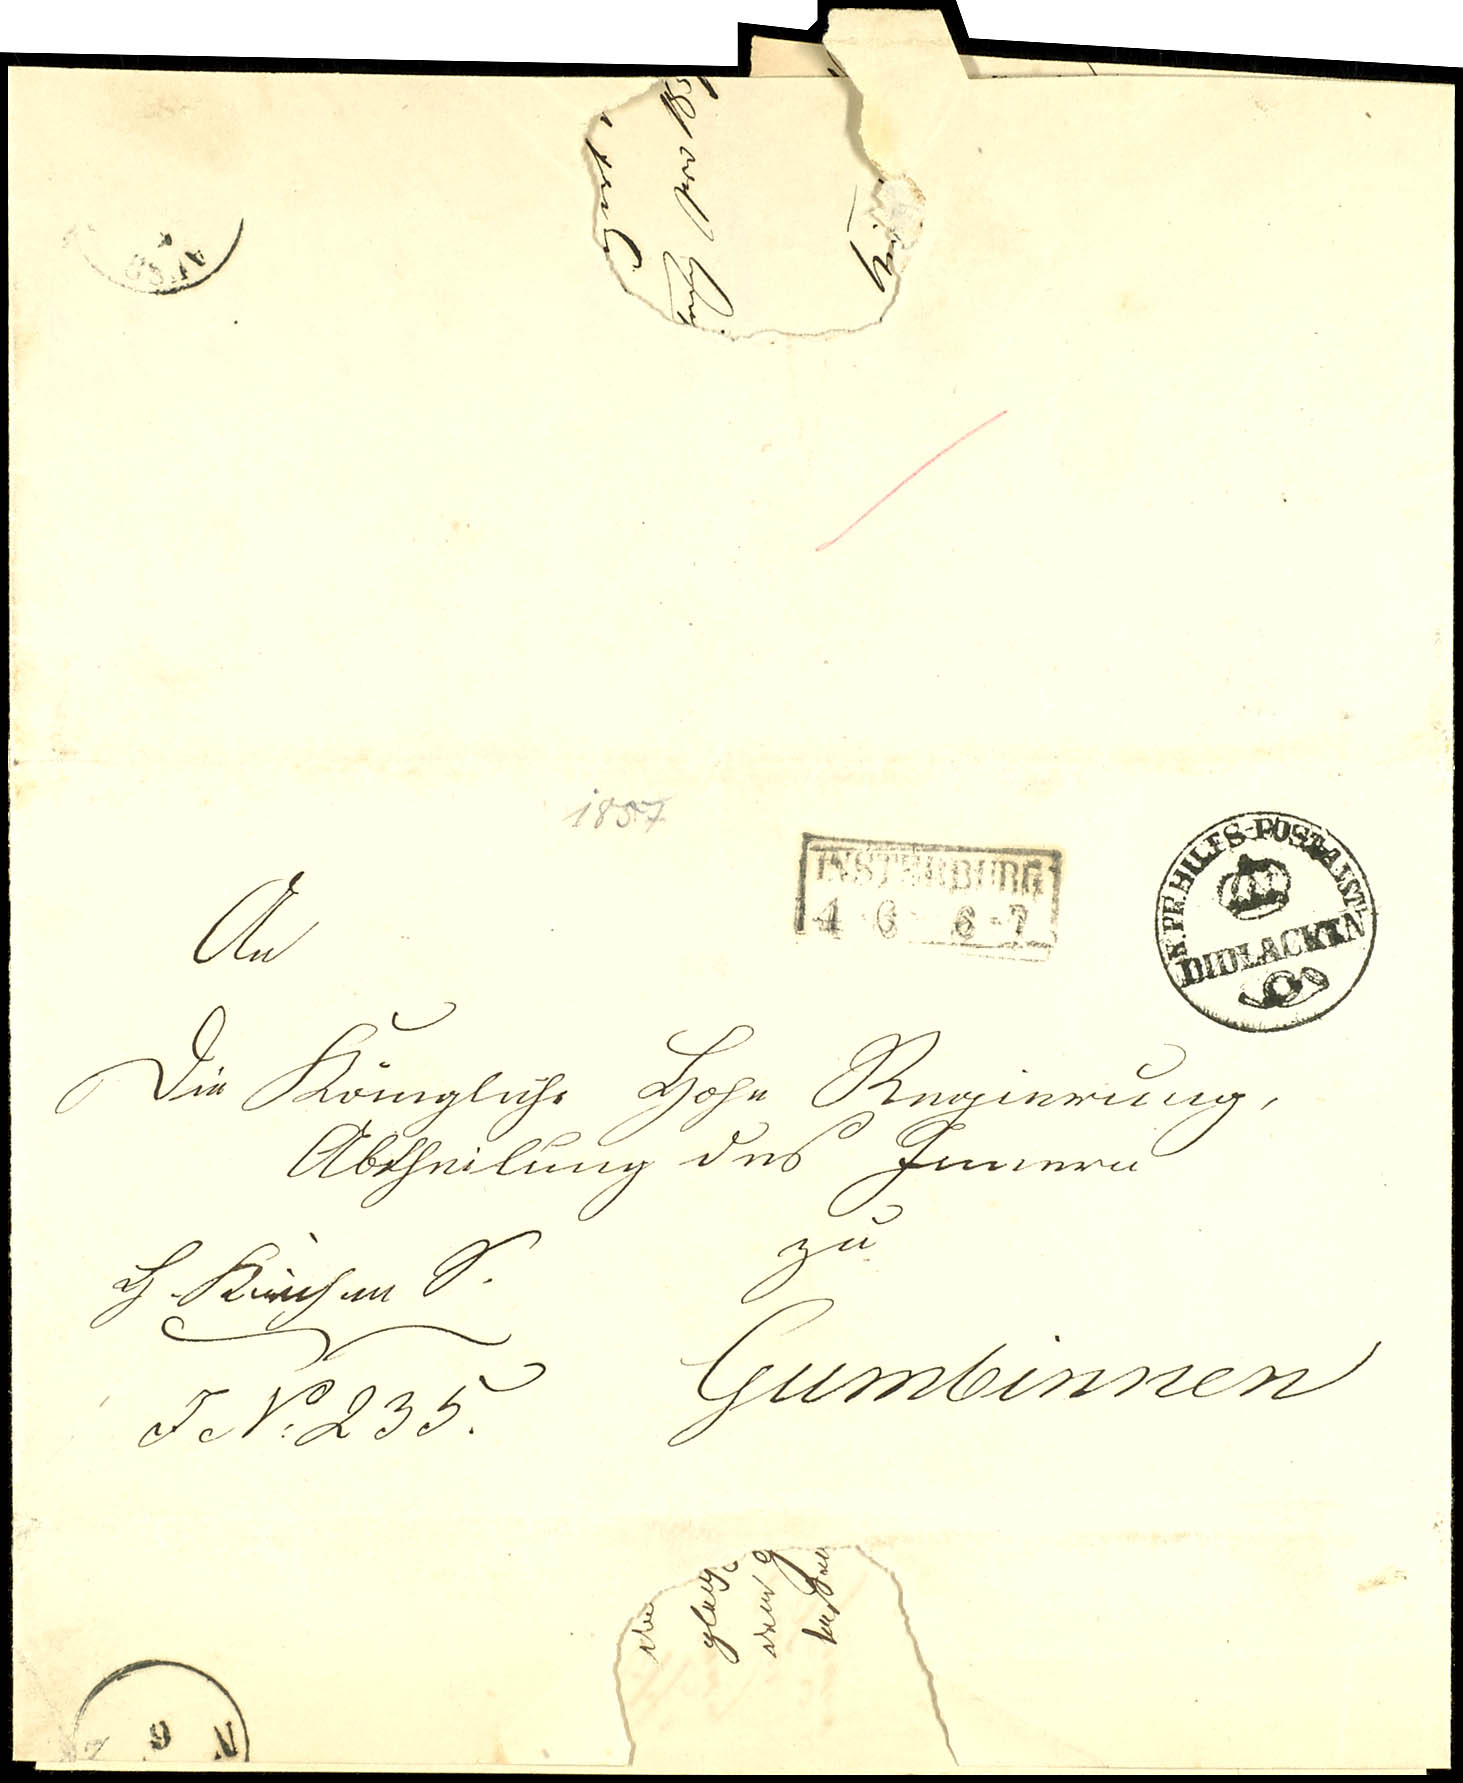 1857
INSTERBURG
4 6 6-7
K.PR.HILFS-POST-ANST.
DIDLACKEN
An
Die Königliche Hohe Regierung,
Abtheilung des Innern
zu
Gumbinnen
H. Kirchen S.
J No: 235.